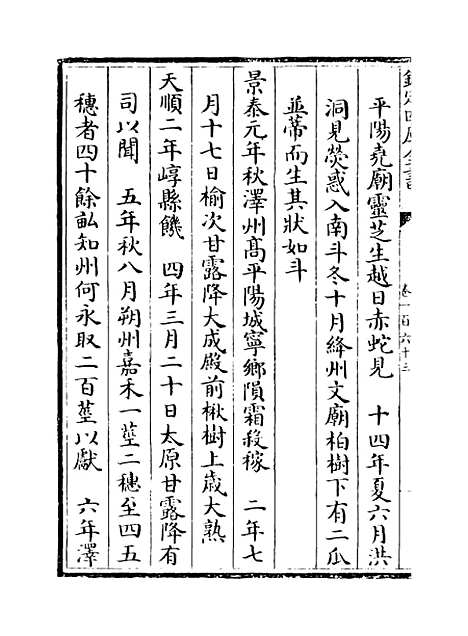 欽定四庫全書
卷一百六十三
平陽堯廟靈芝生越日赤蛇見　十四年夏六月洪
洞見熒惑入南斗冬十月絳州文廟柏樹下有二瓜
並蒂而生其狀如斗
景泰元年秋澤州髙平陽城寧鄉隕霜殺稼　二年七
月十七日榆次甘露降大成殿前楸樹上歳大熟
天順二年崞縣饑　四年三月二十日太原甘露降有
司以聞　五年秋八月朔州嘉禾一莖二穗至四五
穗者四十餘畆知州何永取二百莖以獻　六年澤